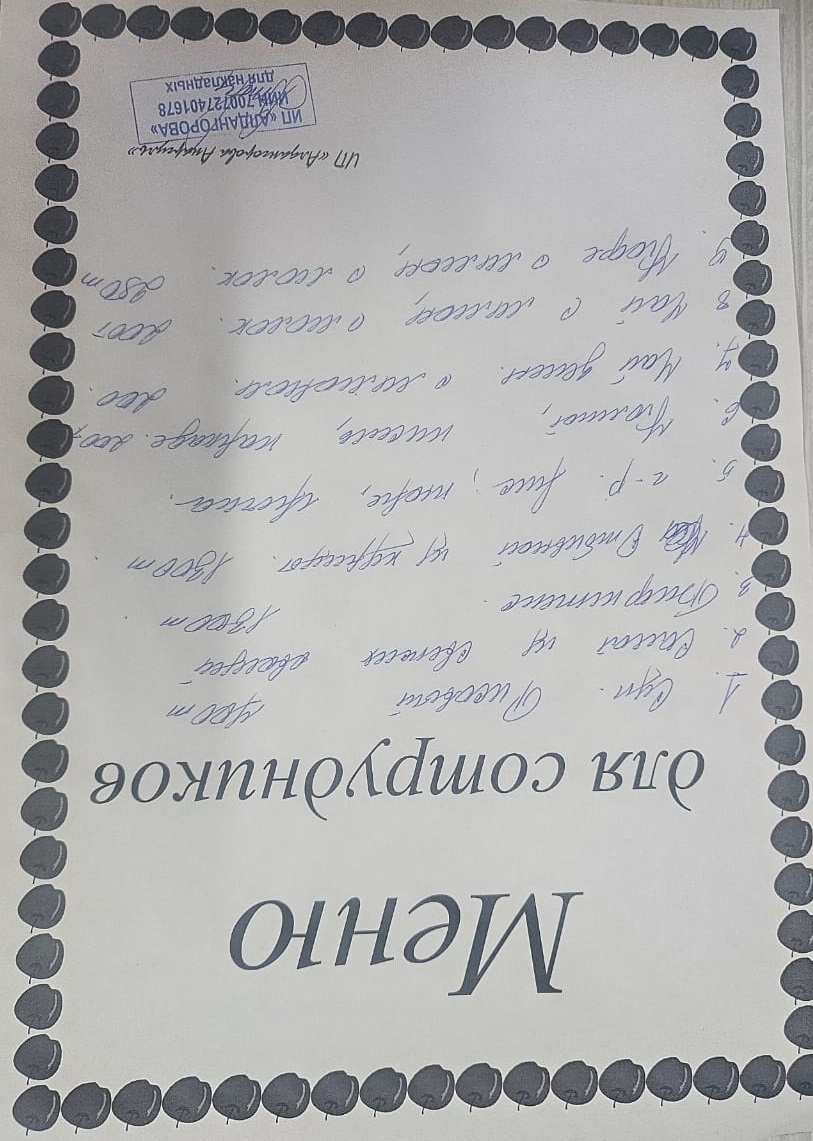 Меню
для сотрудников
1. Суп. Рисовый 400т
2. Салат из свежих овощей
3. Бифштекс. 1300т
4. Отбивной из курицы 1300т
5. г-р. Рис, пюре, гречка.
6. Компот, кисель, каркаде. 200т
7. Чай зелен. с лимоном. 200.
8 Чай с лимон, с молок. 200т
9. Кофе с лимон, с молок. 250т
ИП «Алдангорова Анаргуль»
ИП «АЛДАНГОРОВА»
ИИН 700727401678
для накладных